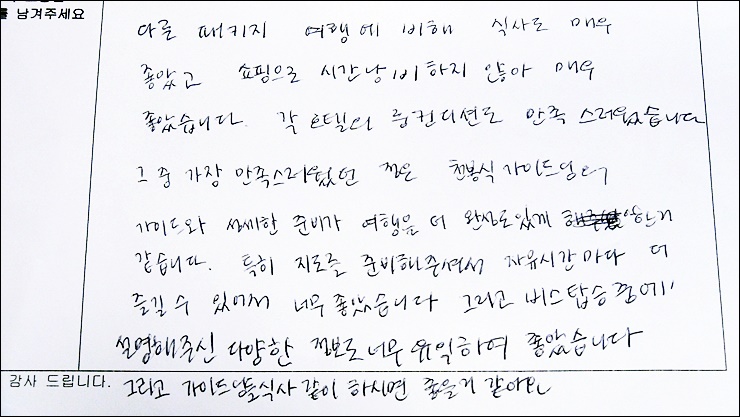 를 남겨주세요
다른 패키지 여행에 비해 식사도 매우
좋았고 쇼핑으로 시간낭비하지 않아 매우
좋았습니다. 각 호텔의 룸컨디션도 만족스러웠습니다
그 중 가장 만족스러웠던 점은 천봉식 가이드님의
가이드와 섬세한 준비가 여행을 더 완성도있게
같습니다. 특히 지도를 준비해주셔서 자유시간마다 더
즐길 수 있어서 너무 좋았습니다 그리고 버스탑승전에
설명해주신 다양한 정보도 너무 유익하여 좋았습니다
감사 드립니다. 그리고 가이드님도 식사 같이 하시면 좋을거 같아요